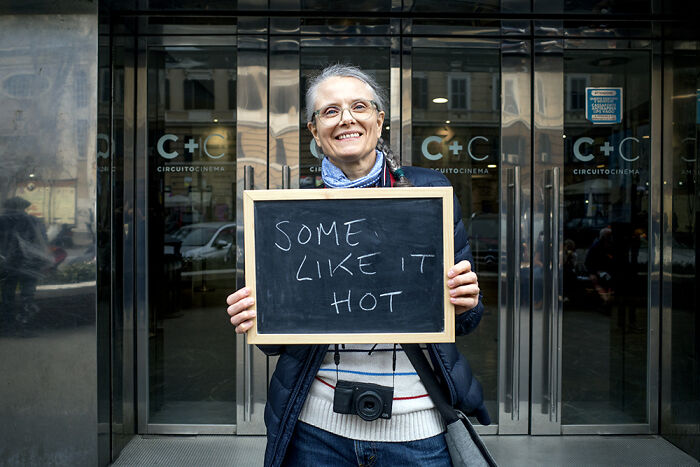 C+C
CIRCUITOCINEMA
C+C
CIRCUITOCINEMA
C+C
CIRCUITOCINEMA
SOME
LIKE IT
HOT